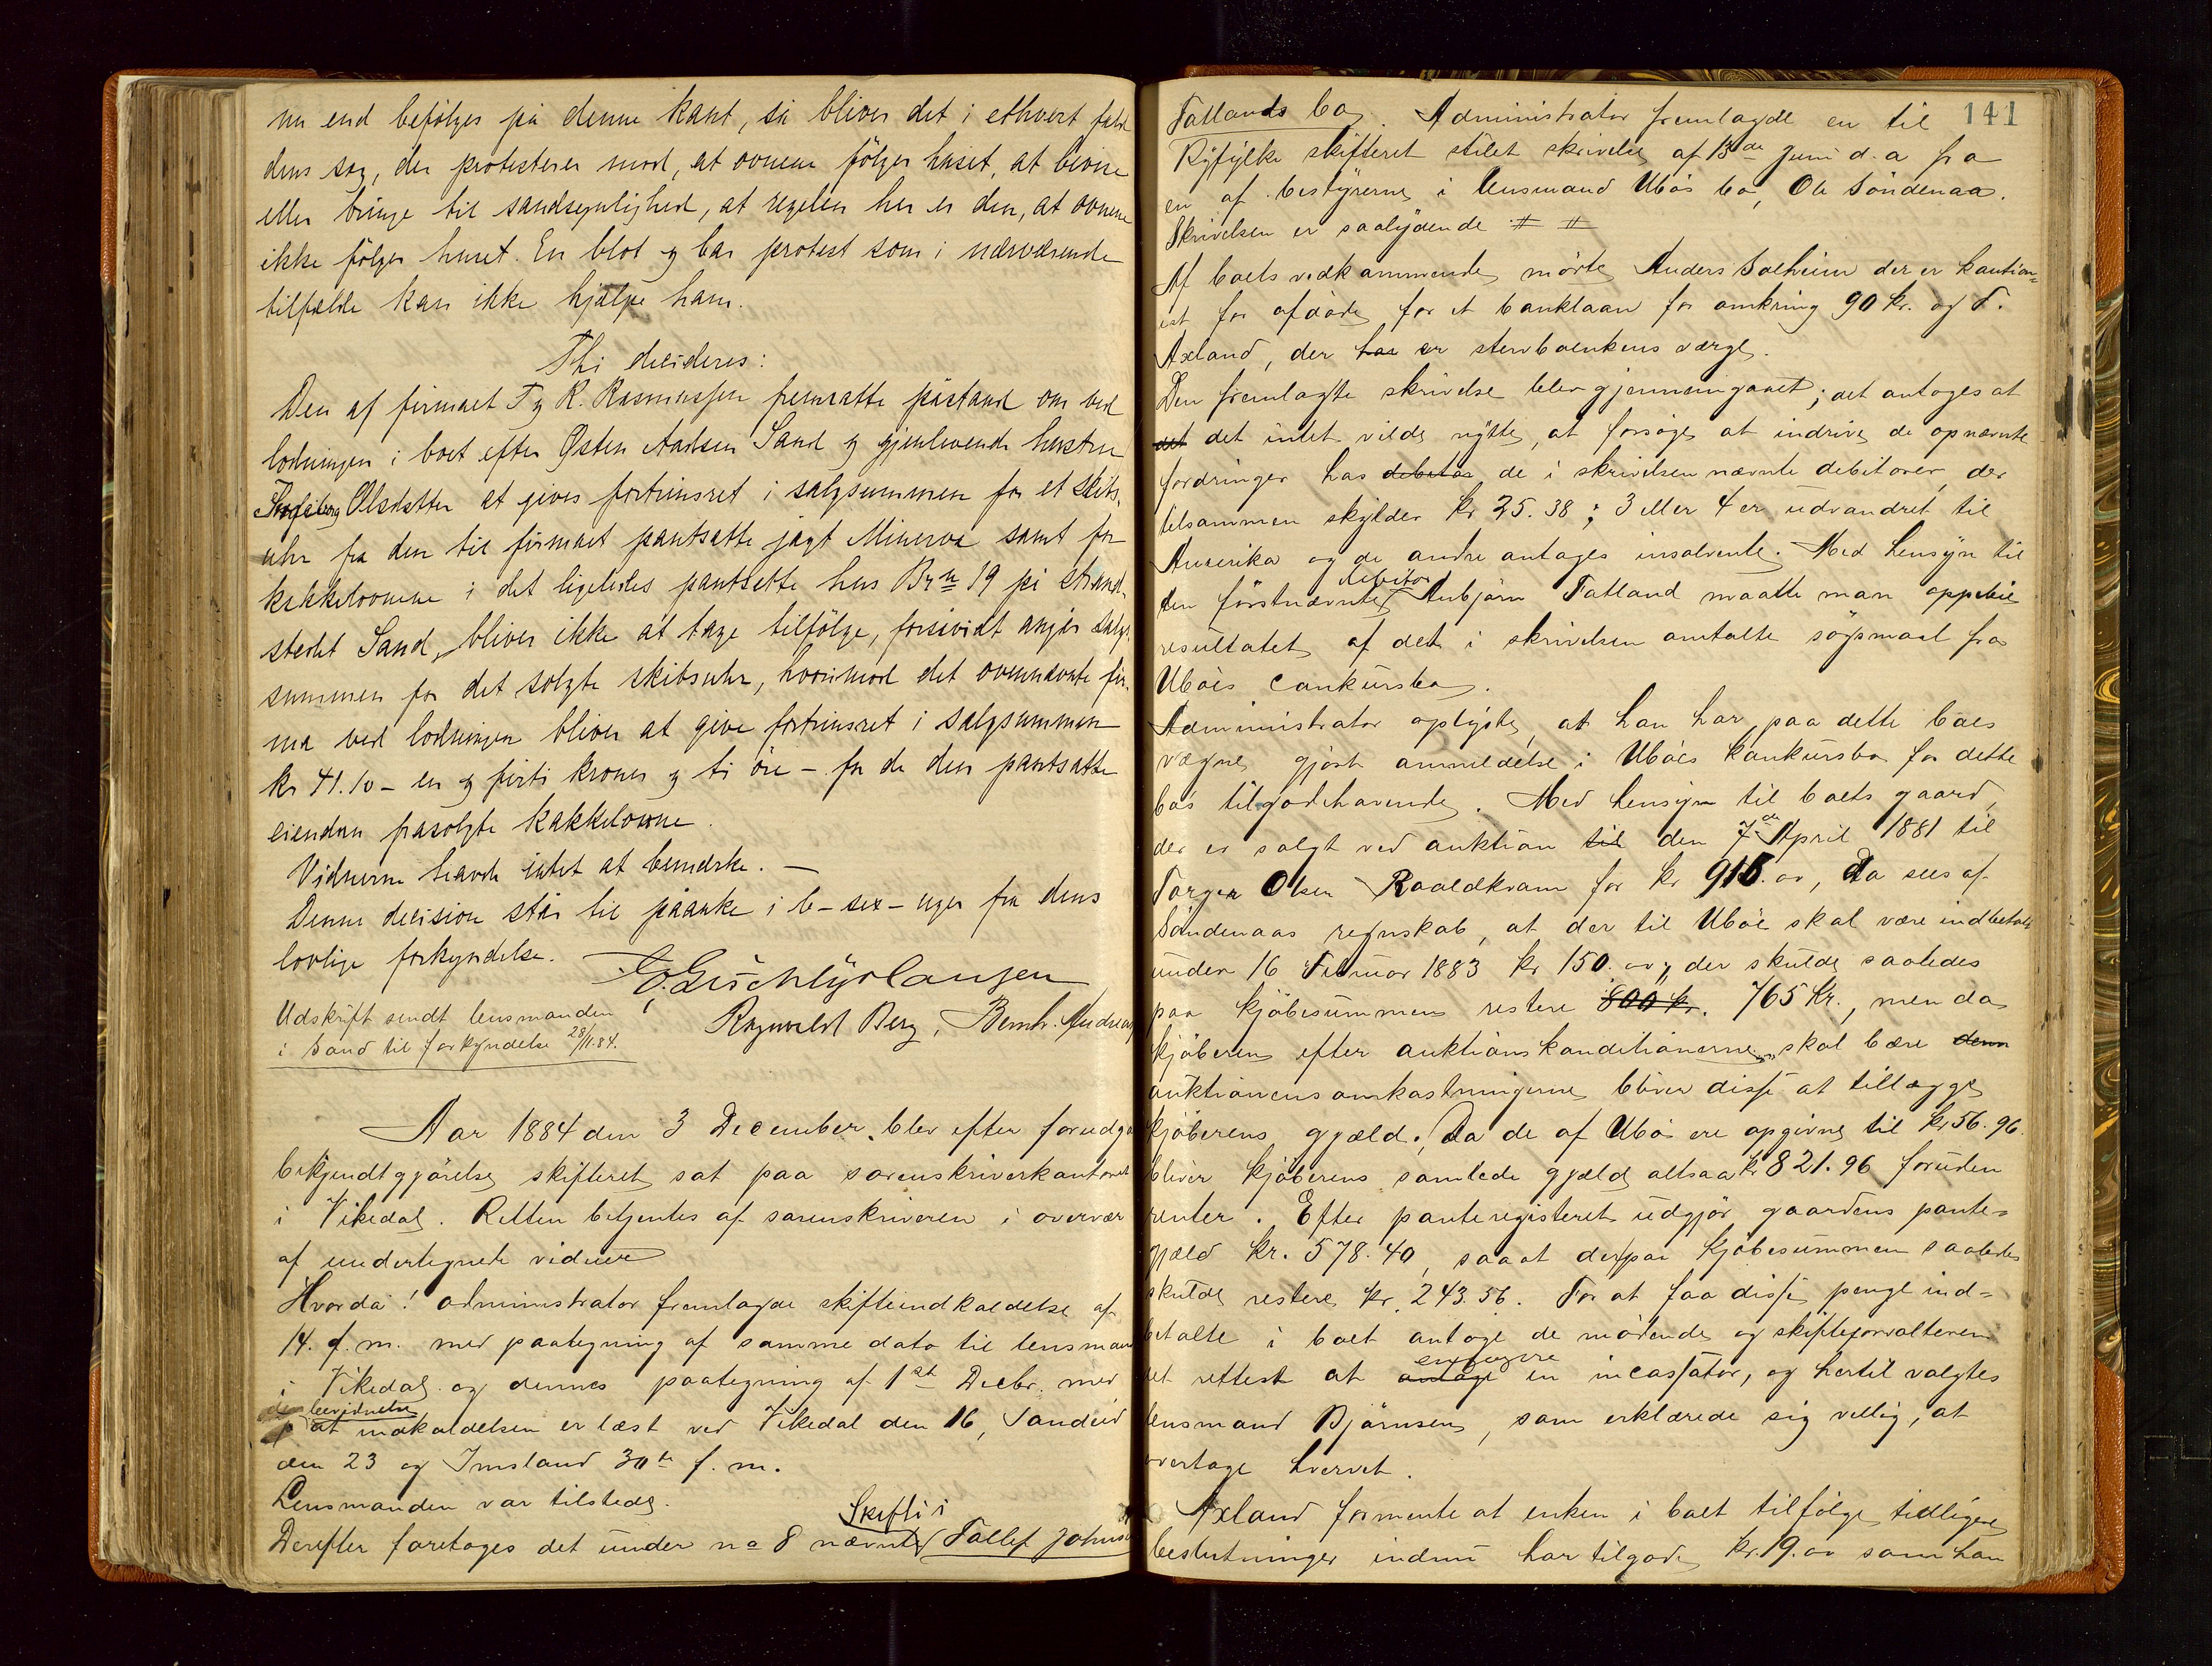 nu end befølges på denne kant, så bliver det i ethvert fald
dens sag, der protesterer mod, at ovnene følger huset, at bevise
eller bringe til sandsynlighed, at regelen her er den, at ovnene
ikke følger huset. En blot og bar protest som i nærværende
tilfælde kan ikke hjælpe ham.
Thi decideres:
Den af firmaet T og R. Rasmussen fremsatte påstand om ved
lodningen i boet efter Østen Aadsen Sand og gjenlevende hustru
Ingeborg Olsdatter at gives fortrinsret i salgsummen for et skibs-
uhr fra den til firmaet pantsatte jagt Minerva samt for
kakkelovnene i det ligeledes pantsatte hus Br n 19 på strand-
stedet Sand, bliver ikke at tage tilfølge, forsåvidt angår salgs-
summen for det solgte skibsuhr, hvorimod det ovennævnte fir-
ma ved lodningen bliver at give fortrinsret i salgsummen
kr 41.10 - en og firti kroner og ti øre - for de den pantsatte
eiendom frasolgte kakkelovne.
Vidnerne havde intet at bemærke. -
Denne decision står til påanke i 6 - sex - uger fra dens
lovlige forkyndelse.
Udskrift sendt lensmanden
i Sand til forkyndelse 28/11.84.
Ragnvald Berg, Bernh. Andreas
Aar 1884 den 3 December blev efter forudg
bekjendtgjørelse skifteret sat paa sorenskriverkontoret
i Vikedal. Retten betjentes af sorenskriveren i overvær
af undertegnede vidner
Hvorda! administrator fremlagde skifteindkaldelse af
14. f. m. med paategning af samme dato til lensmand
i Vikedal og dennes paategning af 1st Decbr. med
bevidnelse
at indkaldelsen er læst ved Vikedal den 16, Sandeid
den 23 og Imsland 30te f. m.
Lensmanden var tilstede.
Skifte i
Derefter foretoges det under no 8 nævnte Tollef Johns
141
Tatlands bo. Administrator fremlagde en til
Ryfylke skifteret stilet skrivelse af 13de Juni d. a fra
en af bestyrerne i lensmand Ubøs bo, Ole Søndenaa.
Skrivelsen er saalydende # #
Af boets vedkommende mødte Anders Solheim der er kaution-
ist for afdøde for et banklaan for omkring 90 kr. og T.
Axland, der har er stervboenkens værge.
Den fremlagte skrivelse blev gjennemgaaet; det antoges at
det det intet vilde nytte, at forsøge at indrive de opnævnte
fordringer hos debitor de i skrivelsen nævnte debitorer, der
tilsammen skylder kr 25.38; 3 eller 4 er udvandret til
Amerika og de andre antages insolvente. Med hensyn til
debitor
den førstnævnte Aubjørn Tatland maatte man oppebie
resultatet af det i skrivelsen omtalte søgsmaal fra
Ubøes conkursbo.
Administrator oplyste, at han har paa dette boes
vegne gjort anmeldelse i Ubøes konkursbo for dette
bos tilgodehavende. Med hensyn til boets gaard,
der er solgt ved auktion til den 7de April 1881 til
Torger Olsen Raaldkvam for kr 915.00, da sees af
Søndenaas regnskab, at der til Ubøe skal være indbetalt
under 16 Februar 1883 kr 150.00, der skulde saaledes
paa kjøbesummen restere 800 kr. 765 kr., men da
kjøberen efter auktionskonditionerne skal bære den
auktionens omkostningerne bliver disse at tillægge
kjøberens gjæld. Da de af Ubø ere opgivne til kr 56.96
bliver kjøberens samlede gjæld altsaa kr 821.96 foruden
renter. Efter panteregisteret udgjør gaardens pante-
gjæld kr. 578.40, saaat der paa kjøbesummen saaledes
skulde restere kr. 243.56. For at faa disse penge ind-
betalte i boet antoge de mødende og skifteforvalteren
engagere
det rettest at antage en incassator, og hertil valgtes
lensmand Bjørnsen, som erklærede sig villig, at
overtage hvervet.
Axland formente at enken i boet tilfølge tidligere
beslutninger endnu har tilgode kr. 19.00 som han